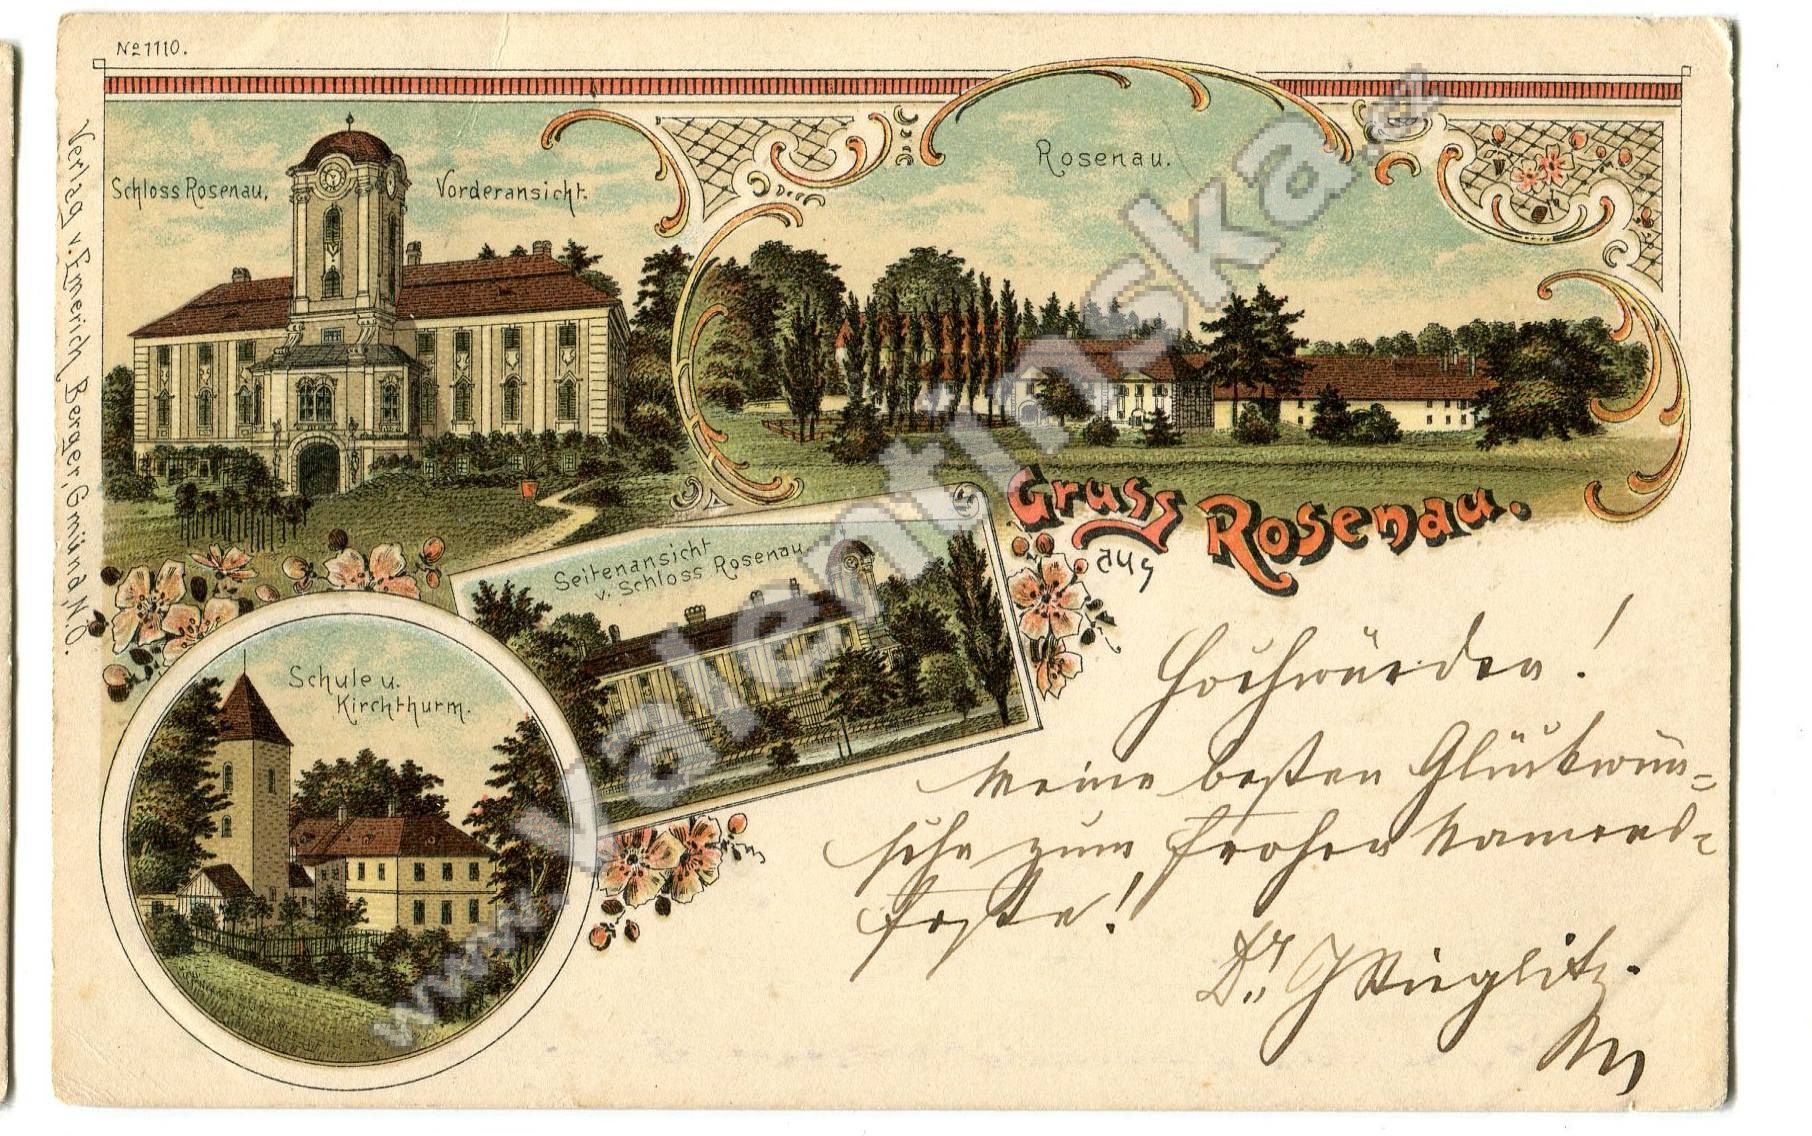 No 1110.
Schloss Rosenau. Vorderansicht.
Rosenau.
Verlag v. Emerich Berger, Gmünd N.Ö.
Gruss
aus
Rosenau.
Seitenansicht
v. Schloss Rosenau.
Schule u.
Kirchthurm.
Hochwürden!
Meine besten Glückwün-
sche zum frohen Namens-
feste!
Dr. J
www.valentinska.cz